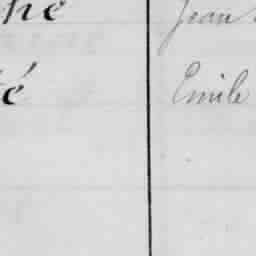 he Jean
é Emile